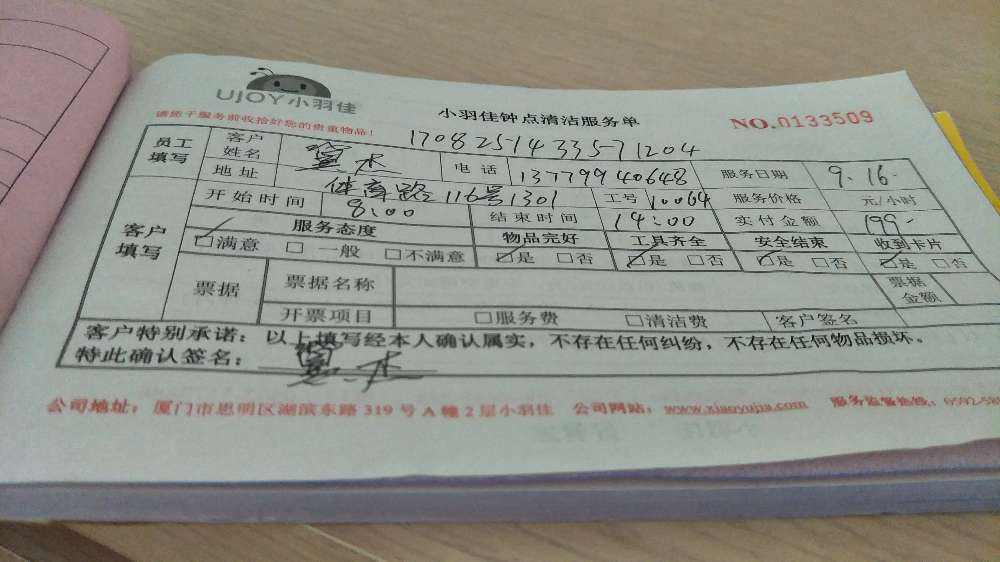 UJOY小羽佳
小羽佳钟点清洁服务单
NO.0133509
请您于服务前收拾好您的贵重物品!
1708251433571204
员工填写 客户姓名 杰 电话 13779940648 服务日期 9.16.
地址 体育路116号1301 工号 10064 服务价格 元/小时
客户填写 开始时间 8:00 结束时间 14:00 实付金额 199.
服务态度 物品完好 工具齐全 安全结束 收到卡片
☑满意 □一般 □不满意 ☑是 □否 ☑是 □否 ☑是 □否 ☑是 □否
票据 票据名称 票据金额
开票项目 □服务费 □清洁费 客户签名
客户特别承诺:以上填写经本人确认属实,不存在任何纠纷,不存在任何物品损坏。
特此确认签名: 杰
公司地址:厦门市思明区湖滨东路319号A幢2层小羽佳 公司网站:www.xiaoyujia.com 服务监督热线:0592-